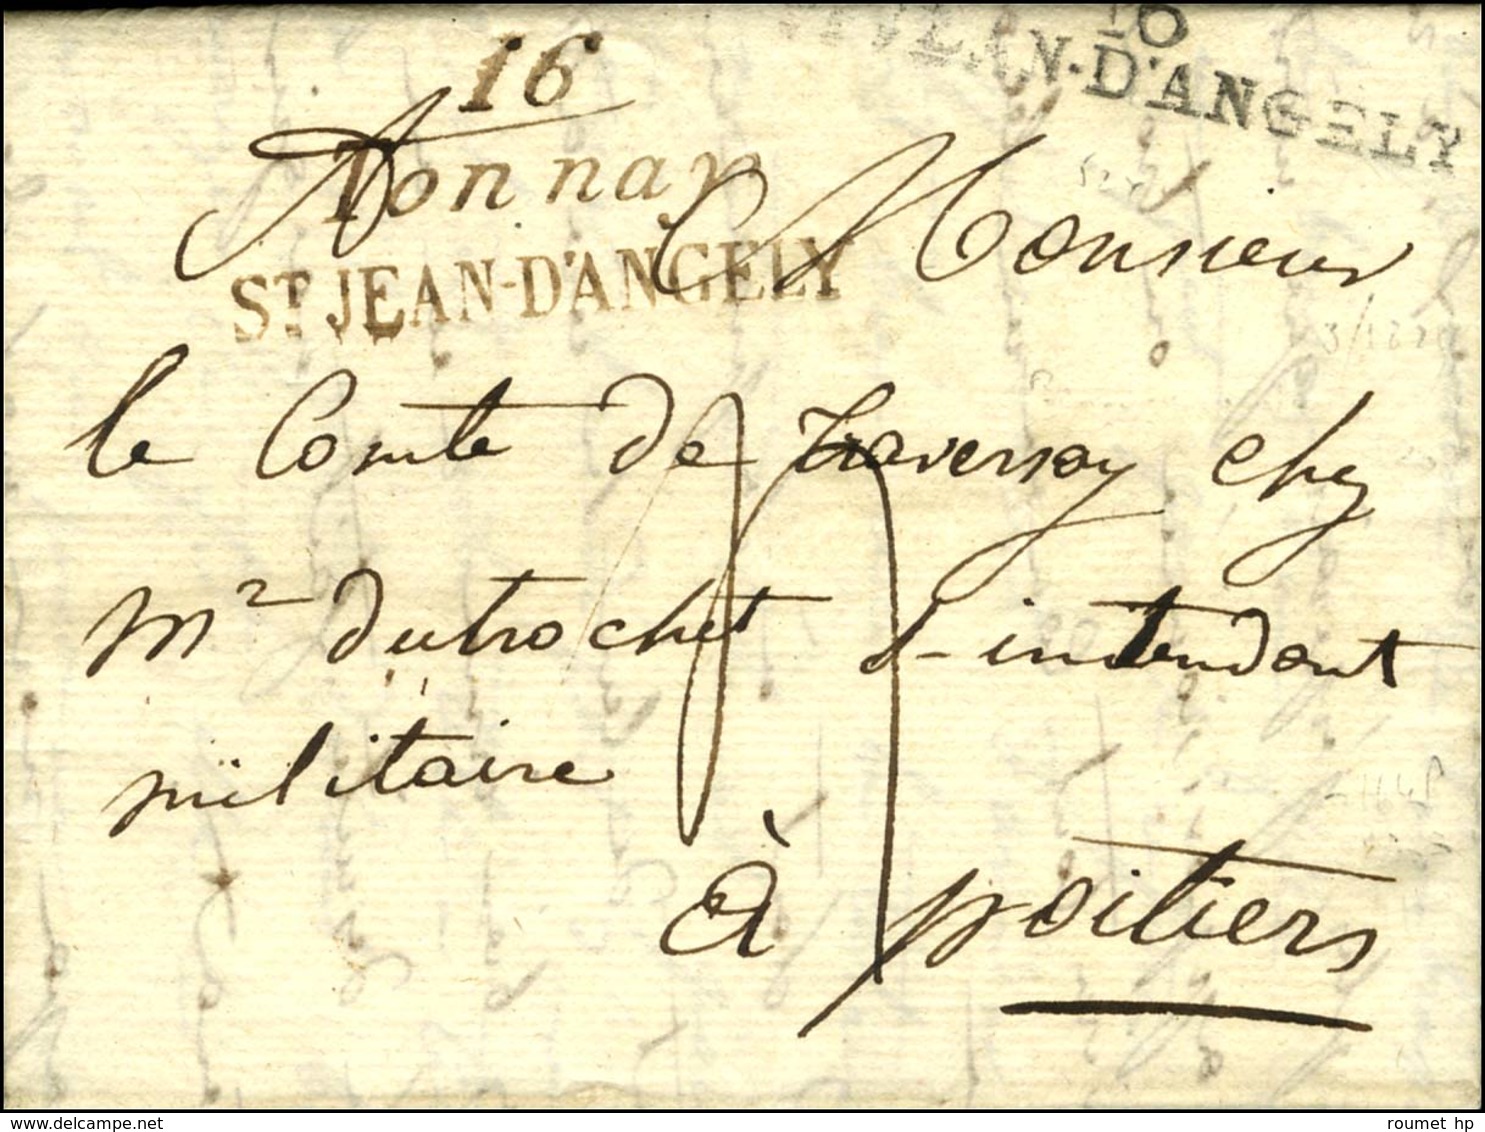 16
Tonnay
ST JEAN-D'ANGELY
16
ST JEAN-D'ANGELY
A Monsieur
le Comte de Traversay chez
mr dutrochet s-intendant
militaire
à poitiers
3/1820
roumet hp